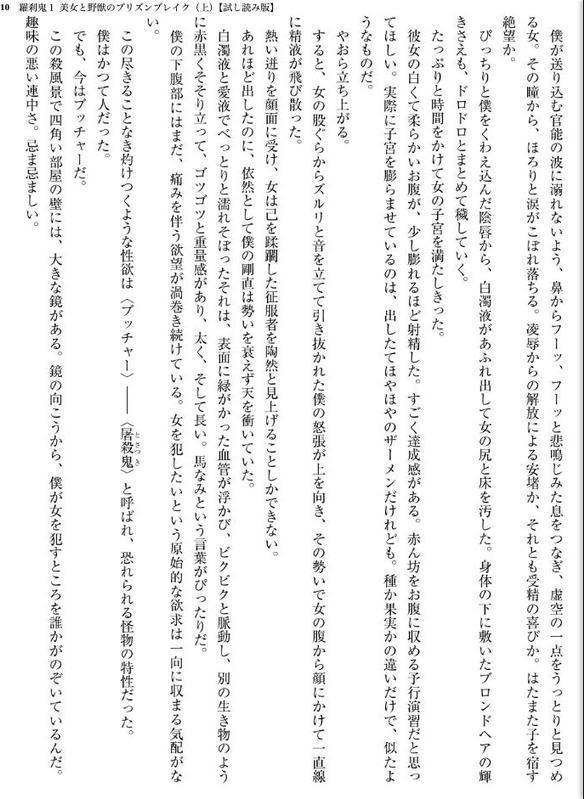 10　羅刹鬼1　美女と野獣のプリズンブレイク（上）【試し読み版】
僕が送り込む官能の波に溺れないよう、鼻からフーッ、フーッと悲鳴じみた息をつなぎ、虚空の一点をうっとりと見つめ
る女。その瞳から、ほろりと涙がこぼれ落ちる。凌辱からの解放による安堵か、それとも受精の喜びか。はたまた子を宿す
絶望か。
ぴっちりと僕をくわえ込んだ陰唇から、白濁液があふれ出して女の尻と床を汚した。身体の下に敷いたブロンドヘアの輝
きさえも、ドロドロとまとめて穢していく。
たっぷりと時間をかけて女の子宮を満たしきった。
彼女の白くて柔らかいお腹が、少し膨れるほど射精した。すごく達成感がある。赤ん坊をお腹に収める予行演習だと思っ
てほしい。実際に子宮を膨らませているのは、出したてほやほやのザーメンだけれども。種か果実かの違いだけで、似たよ
うなものだ。
やおら立ち上がる。
すると、女の股ぐらからズルリと音を立てて引き抜かれた僕の怒張が上を向き、その勢いで女の腹から顔にかけて一直線
に精液が飛び散った。
熱い迸りを顔面に受け、女は己を蹂躙した征服者を陶然と見上げることしかできない。
あれほど出したのに、依然として僕の剛直は勢いを衰えず天を衝いていた。
白濁液と愛液でべっとりと濡れそぼったそれは、表面に緑がかった血管が浮かび、ビクビクと脈動し、別の生き物のよう
に赤黒くそそり立って、ゴツゴツと重量感があり、太く、そして長い。馬なみという言葉がぴったりだ。
僕の下腹部にはまだ、痛みを伴う欲望が渦巻き続けている。女を犯したいという原始的な欲求は一向に収まる気配がな
い。
この尽きることなき灼けつくような性欲は〈ブッチャー〉――〈屠殺鬼〉と呼ばれ、恐れられる怪物の特性だった。
僕はかつて人だった。
でも、今はブッチャーだ。
この殺風景で四角い部屋の壁には、大きな鏡がある。鏡の向こうから、僕が女を犯すところを誰かがのぞいているんだ。
趣味の悪い連中さ。忌ま忌ましい。